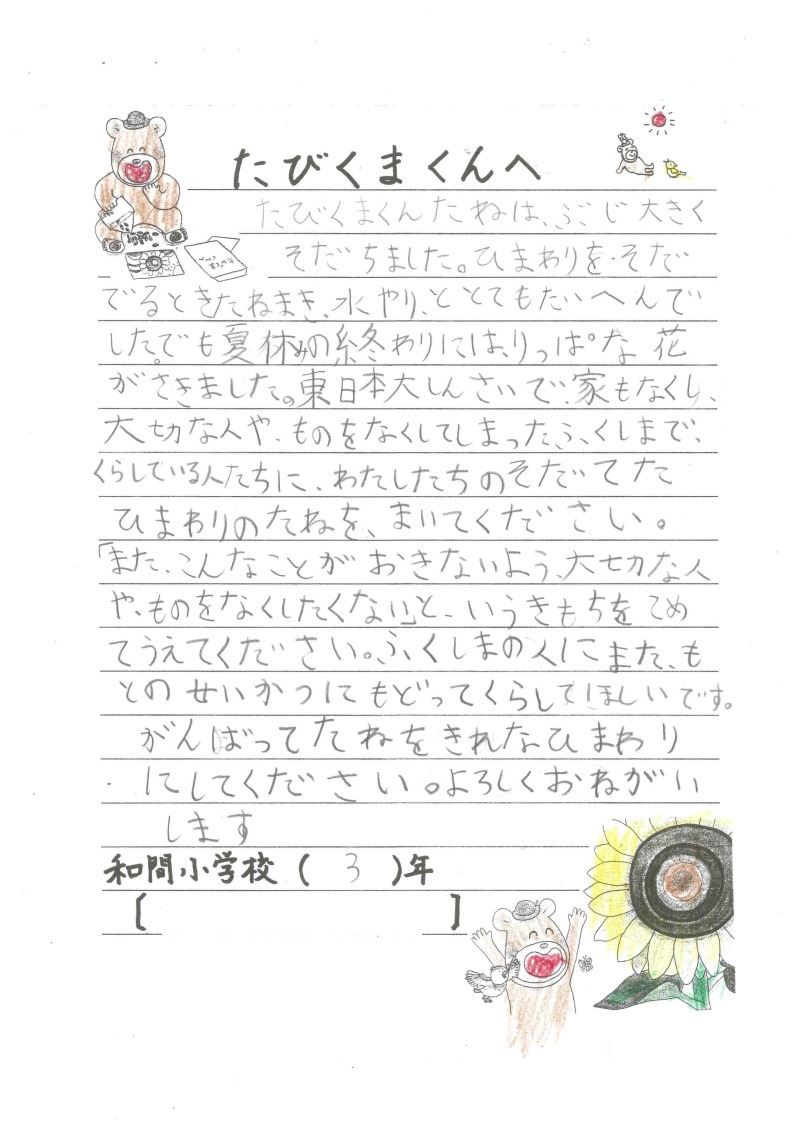 たびくまくんへ
たびくまくんたねは、ぶじ大きく
そだちました。ひまわりを、そだ
でるときたねまき、水やり、ととてもたいへんで
した。でも夏休みの終わりには、りっぱな花
がさきました。東日本大しんさいで、家もなくし、
大切な人や、ものをなくしてしまったふくしまで、
くらしている人たちに、わたしたちのそだてた
ひまわりのたねを、まいてください。
「また、こんなことがおきないよう、大切な人
や、ものをなくしたくない」と、いうきもちをこめ
てうえてください。ふくしまの人にまた、も
とのせいかつにもどってくらしてほしいです。
がんばってたねをきれなひまわり
にしてください。よろしくおねがい
します
和間小学校（3）年
[ ]